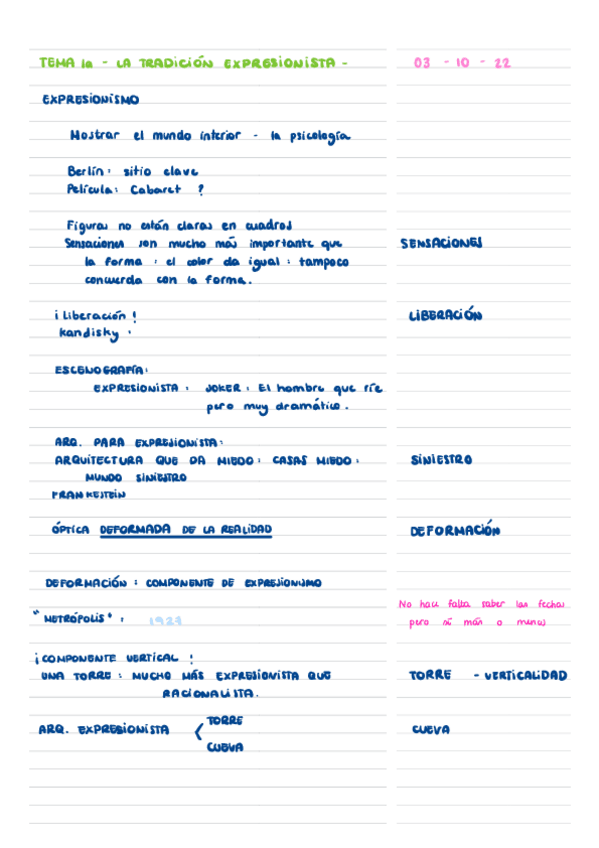 TEMA 1a - LA TRADICIÓN EXPRESIONISTA -
03 - 10 - 22
EXPRESIONISMO
Mostrar el mundo interior - la psicología
Berlín: sitio clave
Película: Cabaret ?
Figuras no están claras en cuadros
Sensaciones son mucho más importante que
SENSACIONES
la forma : el color da igual : tampoco
concuerda con la forma.
¡Liberación!
LIBERACIÓN
Kandisky .
ESCENOGRAFÍA:
EXPRESIONISTA : JOKER : El hombre que ríe
pero muy dramático.
ARQ. PARA EXPRESIONISTA:
ARQUITECTURA QUE DA MIEDO : CASAS MIEDO :
SINIESTRO
MUNDO SINIESTRO
FRANKESTEIN
ÓPTICA DEFORMADA DE LA REALIDAD
DEFORMACIÓN
DEFORMACIÓN : COMPONENTE DE EXPRESIONISMO
No hace falta saber las fechas
pero sí más o menos
"METRÓPOLIS" :
¡COMPONENTE VERTICAL!
UNA TORRE : MUCHO MÁS EXPRESIONISTA QUE
TORRE - VERTICALIDAD
RACIONALISTA.
ARQ. EXPRESIONISTA < TORRE
CUEVA
CUEVA